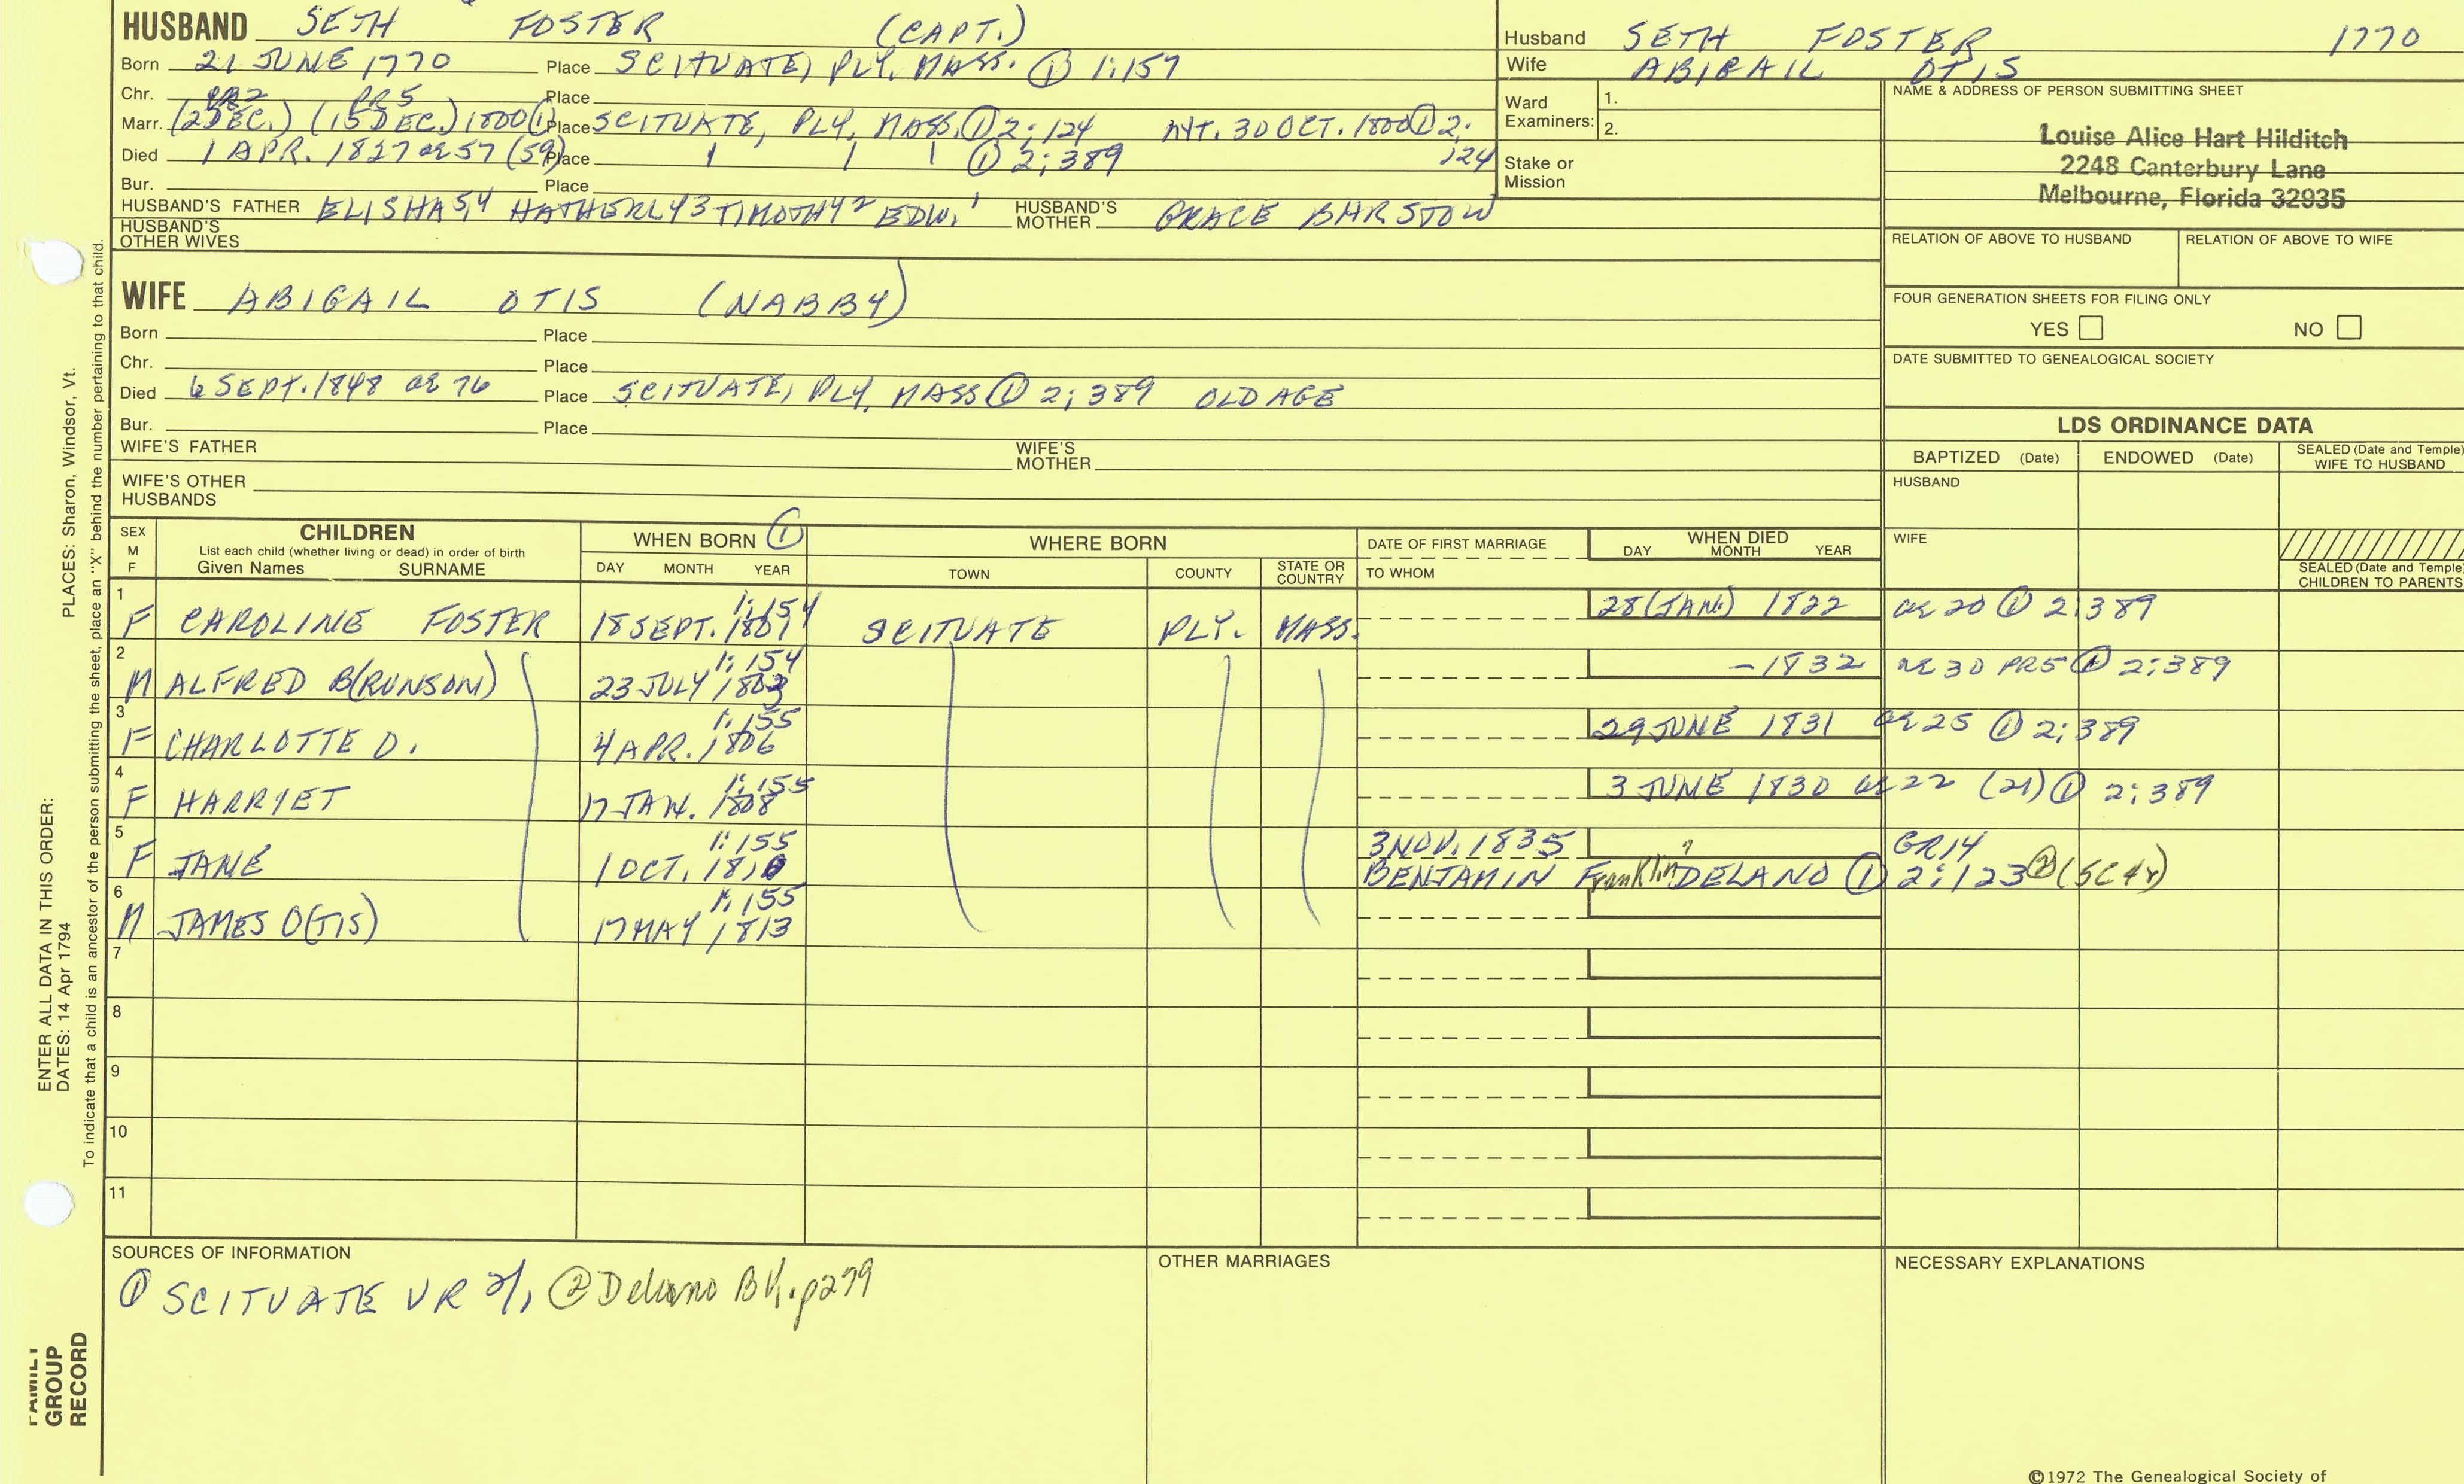 HUSBAND SETH FOSTER (CAPT.)
Born 21 JUNE 1770 Place SCITUATE, PLY. MASS. ① 1:157
Chr. PR5 Place
Marr. (2 DEC.) (15 DEC.) 1800 ① Place SCITUATE, PLY. MASS. ① 2:124 INT. 30 OCT. 1800 ① 2:124
Died 1 APR. 1827 ae 57 (59) Place ① 2:389
Bur. Place
HUSBAND'S FATHER ELISHA 5,4 HATHERLY 3 TIMOTHY 2 EDW. 1 HUSBAND'S MOTHER GRACE BARSTOW
HUSBAND'S OTHER WIVES
WIFE ABIGAIL OTIS (NABBY)
Born Place
Chr. Place
Died 6 SEPT. 1848 ae 76 Place SCITUATE, PLY. MASS ① 2:389 OLD AGE
Bur. Place
WIFE'S FATHER WIFE'S MOTHER
WIFE'S OTHER HUSBANDS
Husband SETH FOSTER 1770
Wife ABIGAIL OTIS
Ward Examiners: 1.
2.
Stake or Mission
NAME & ADDRESS OF PERSON SUBMITTING SHEET
Louise Alice Hart Hilditch
2248 Canterbury Lane
Melbourne, Florida 32935
RELATION OF ABOVE TO HUSBAND RELATION OF ABOVE TO WIFE
FOUR GENERATION SHEETS FOR FILING ONLY
YES NO
DATE SUBMITTED TO GENEALOGICAL SOCIETY
LDS ORDINANCE DATA
BAPTIZED (Date) ENDOWED (Date) SEALED (Date and Temple) WIFE TO HUSBAND
HUSBAND
WIFE
SEALED (Date and Temple) CHILDREN TO PARENTS
SEX M F CHILDREN WHEN BORN ① WHERE BORN DATE OF FIRST MARRIAGE WHEN DIED
List each child (whether living or dead) in order of birth
Given Names SURNAME DAY MONTH YEAR TOWN COUNTY STATE OR COUNTRY TO WHOM DAY MONTH YEAR
1 F CAROLINE FOSTER 18 SEPT. 1801 1:154 SCITUATE PLY. MASS. 28 (JAN.) 1822 ae 20 ① 2:389
2 M ALFRED B(RUNSOM) 23 JULY 1803 1:154 -1832 ae 30 PR5 ① 2:389
3 F CHARLOTTE D. 4 APR. 1806 1:155 29 JUNE 1831 ae 25 ① 2:389
4 F HARRIET 17 JAN. 1808 1:155 3 JUNE 1830 ae 22 (21) ① 2:389
5 F JANE 1 OCT. 1810 1:155 3 NOV. 1835 GR14
BENJAMIN Franklin DELANO ① 2:123 ②
6 M JAMES O(TIS) 17 MAY 1813 1:155
7
8
9
10
11
SOURCES OF INFORMATION
① SCITUATE VR ② Delano Bk. p279
OTHER MARRIAGES
NECESSARY EXPLANATIONS
©1972 The Genealogical Society of
PLACES: Sharon, Windsor, Vt.
ENTER ALL DATA IN THIS ORDER:
DATES: 14 Apr 1794
To indicate that a child is an ancestor of the person submitting the sheet, place an "X" behind the number pertaining to that child.
FAMILY
GROUP
RECORD